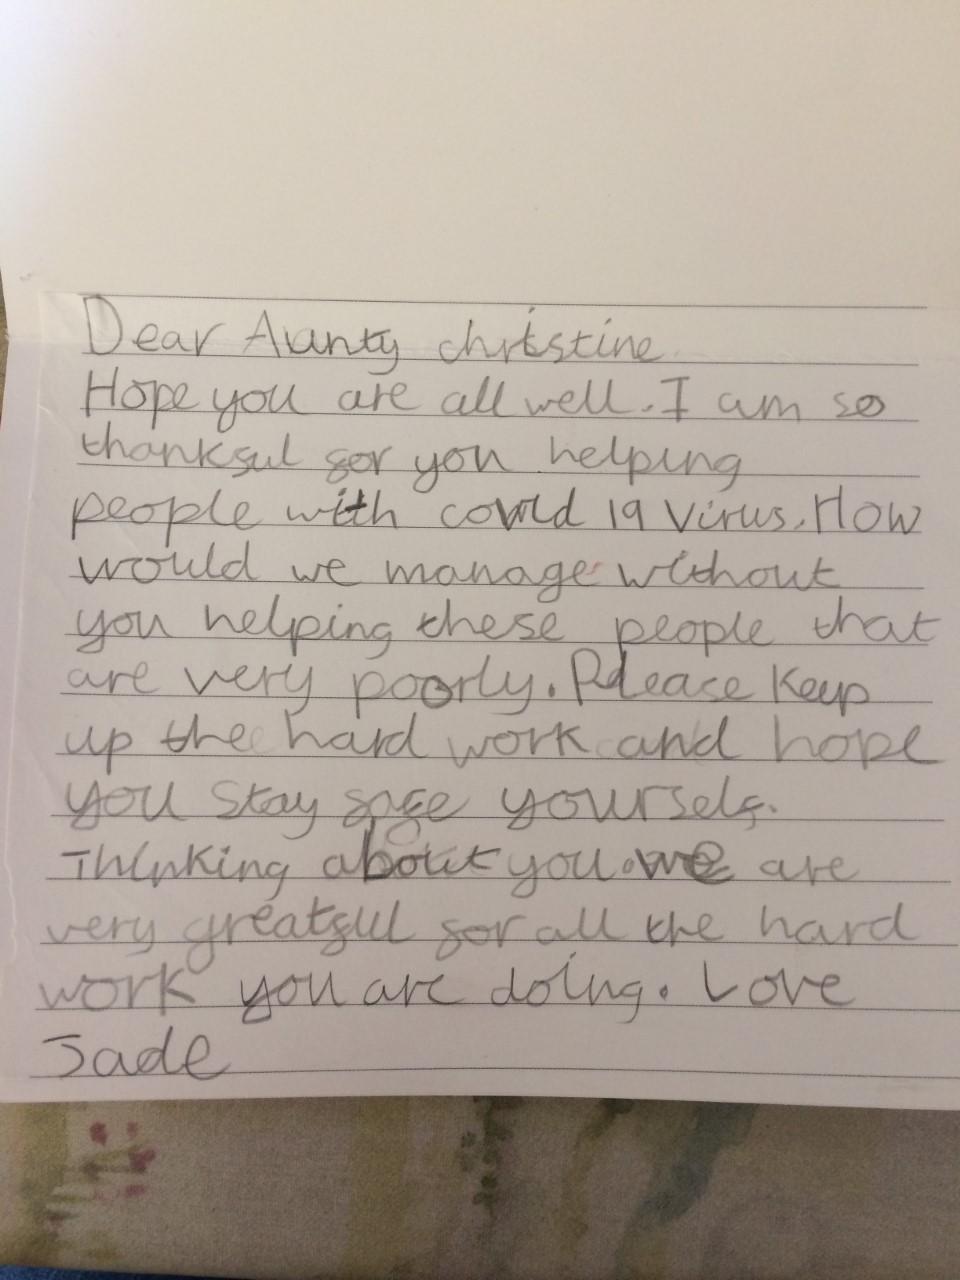 Dear Aunty christine
Hope you are all well. I am so
thankful for you helping
people with covid 19 virus. How
would we manage without
you helping these people that
are very poorly. Please Keep
up the hard work and hope
you stay safe yourself.
Thinking about you. we are
very greatful for all the hard
work you are doing. Love
Jade